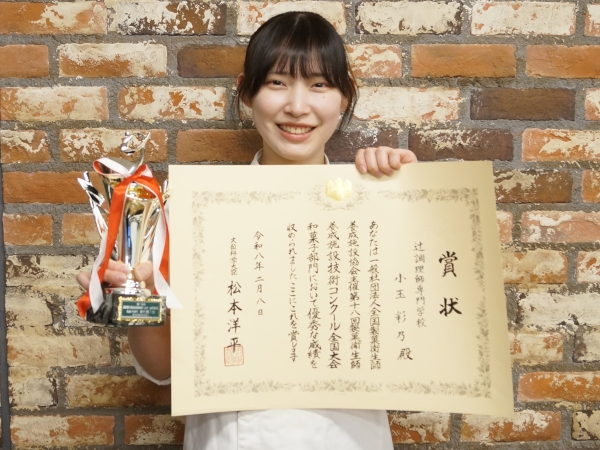 賞状
辻調理師専門学校
小玉彩乃殿
あなたは一般社団法人全国製菓衛生師
養成施設協会主催第十八回製菓衛生師
養成施設技術コンクール全国大会
和菓子部門において優秀な成績を
収められましたここにこれを賞します
令和八年二月八日
文部科学大臣 松本洋平